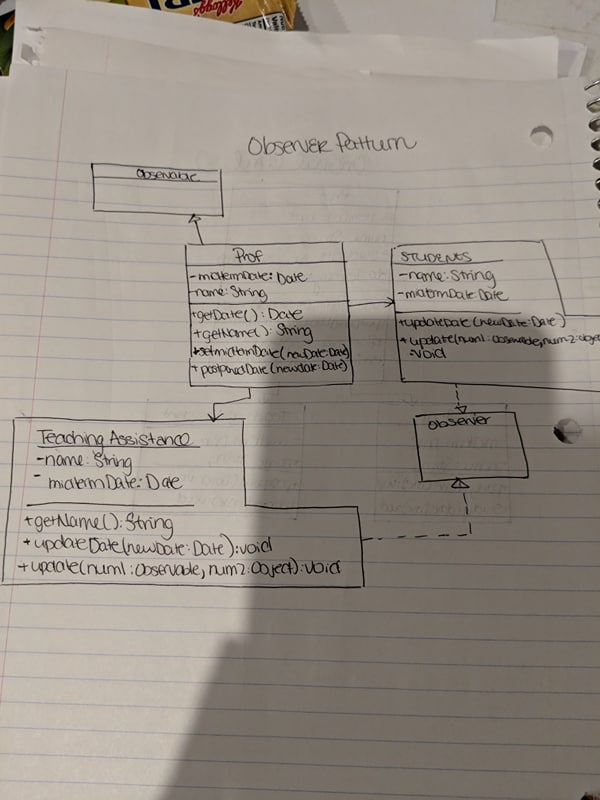 Kellogg's
Observer Pattern
Observable
Prof
- midtermDate: Date
name: String
+getDate(): Date
+getName(): String
+setmidtermDate(newDate:Date)
+ postponedDate(newdate:Date)
STUDENTS
- name: String
- midtrmDate: Date
+updateDate(newDate:Date)
+ update(num1: Observable, num2: object)
: void
Observer
Teaching Assistance
- name: String
- midtermDate: Date
+getName(): String
+ updateDate(newDate: Date): void
+ update(num1: Observable, num2: Object): void